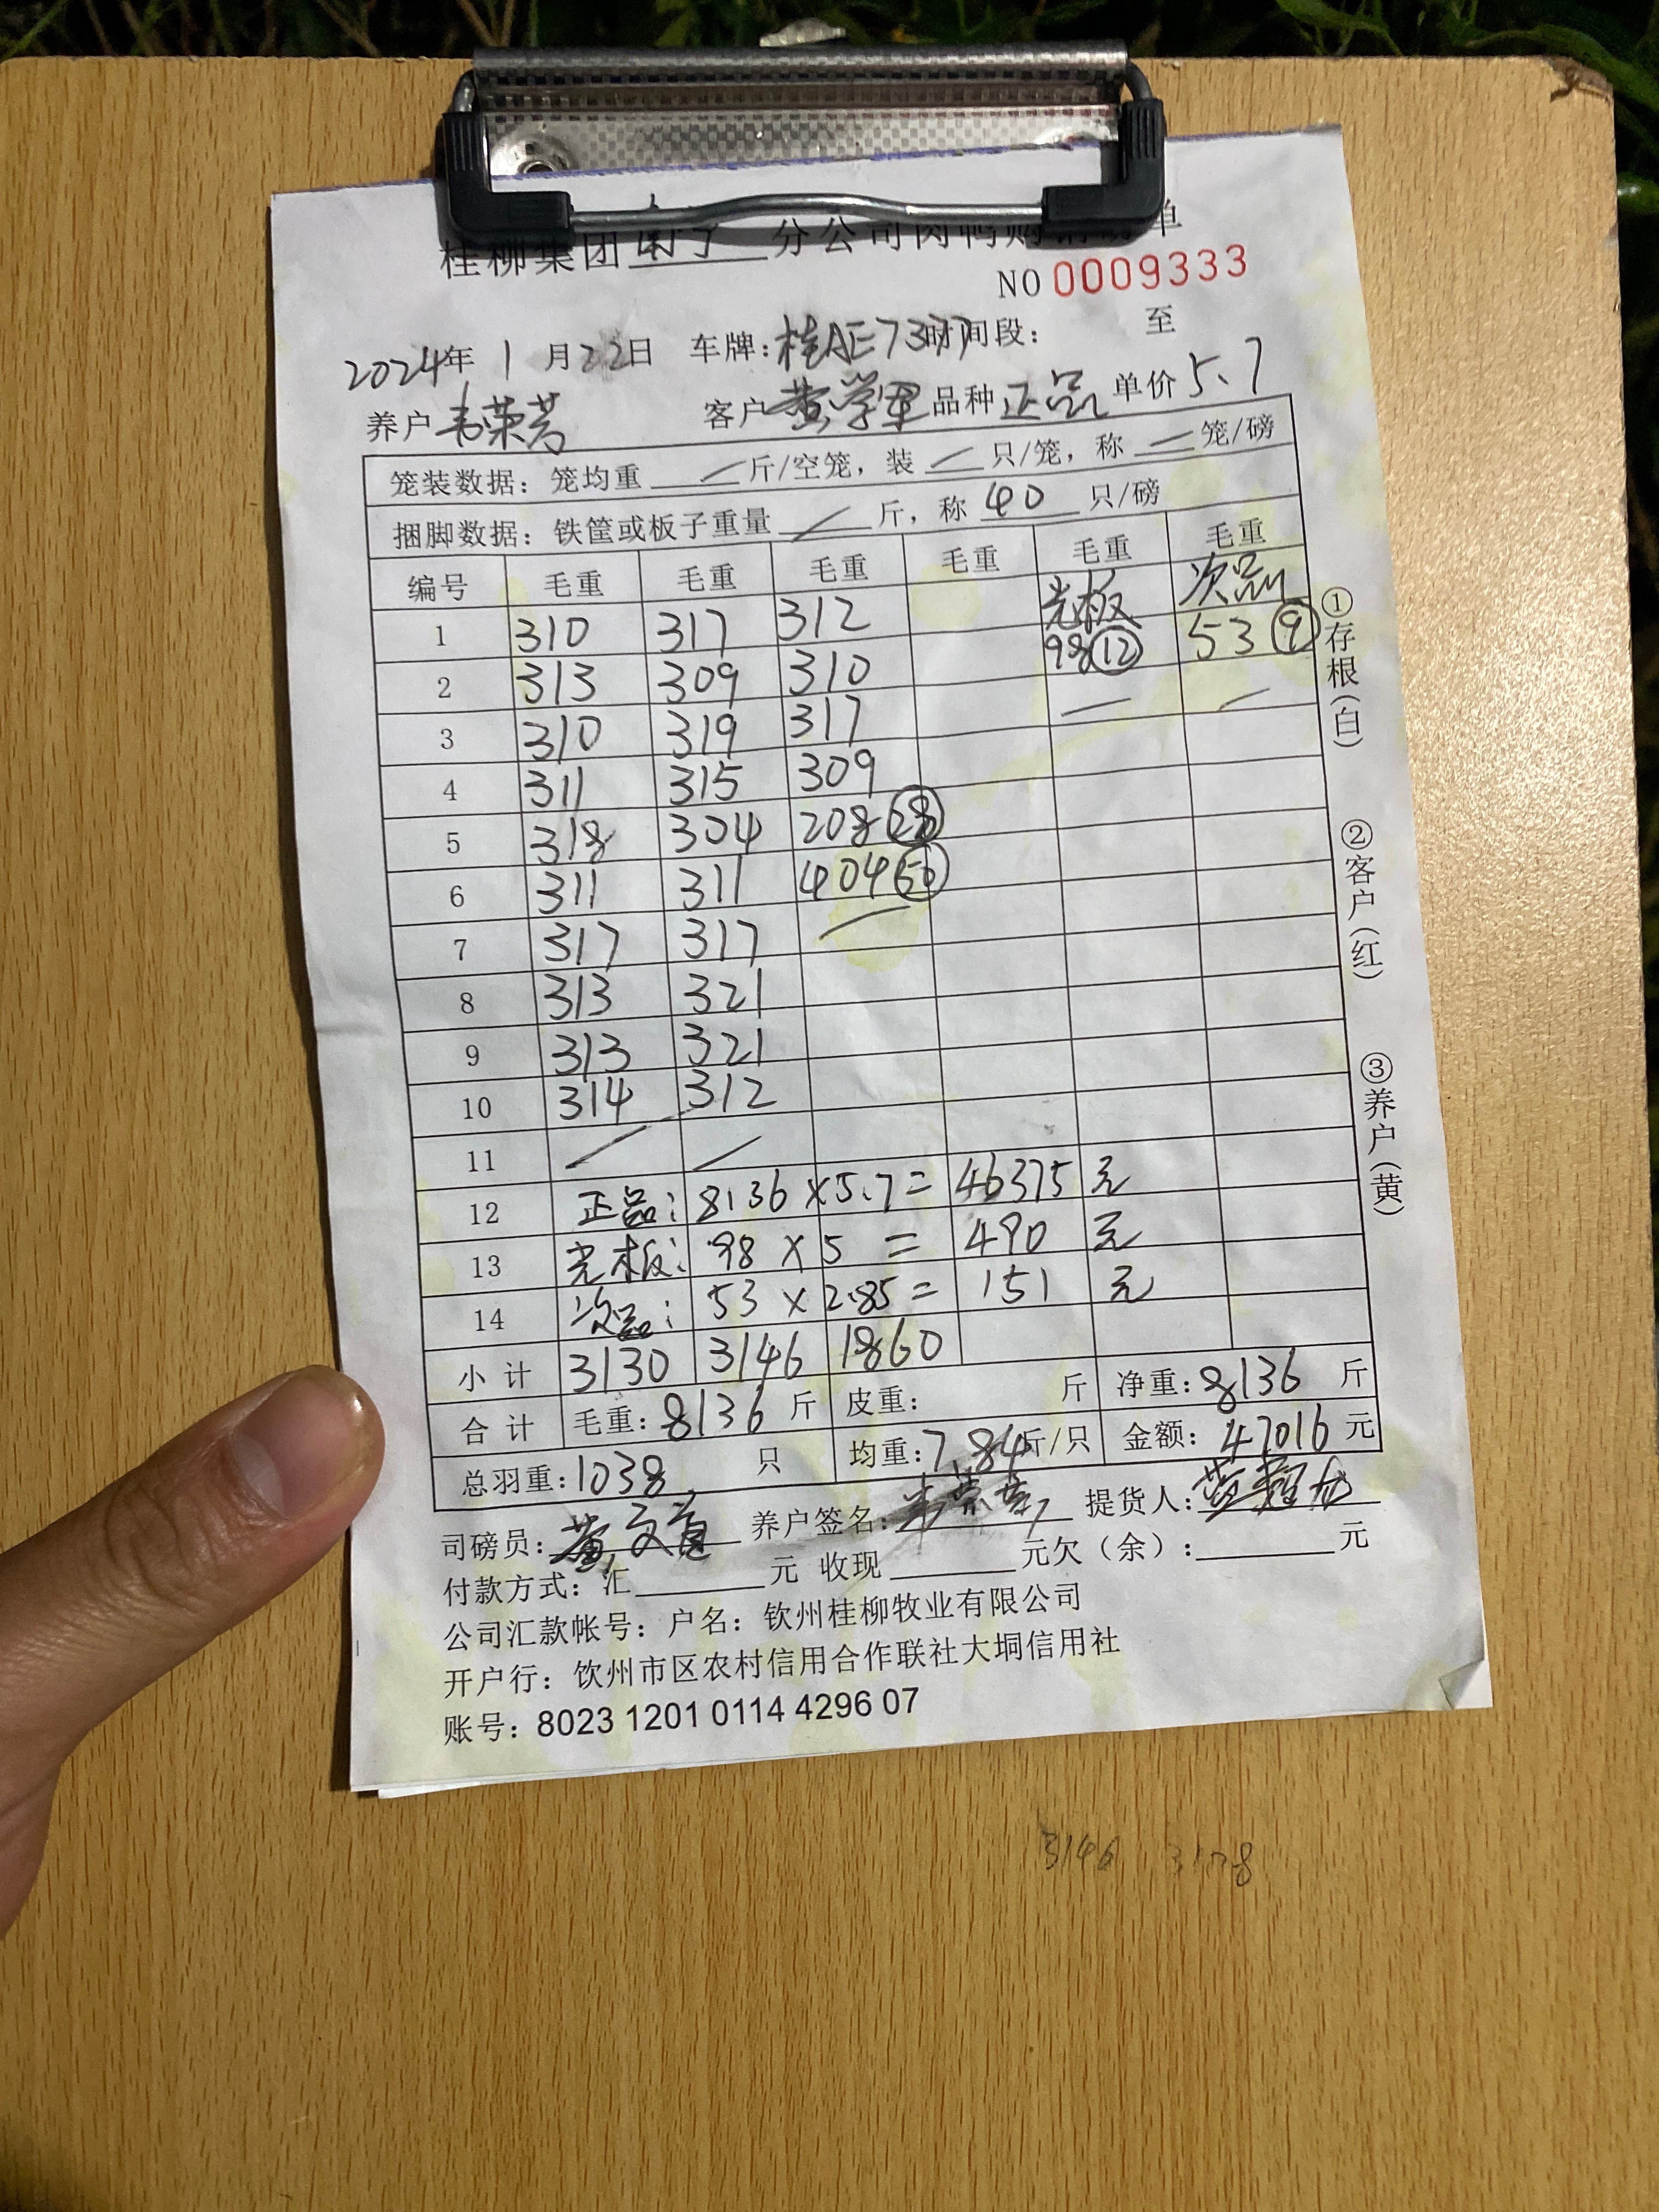 桂柳集团南宁分公司肉鸭购销单
NO 0009333
2024年 1月22日 车牌:桂AE7377时间段: 至
养户 韦荣芳 客户 黄学军 品种 正品 单价 5.7
笼装数据: 笼均重 斤/空笼, 装 只/笼, 称 笼/磅
捆脚数据: 铁筐或板子重量 斤, 称 40 只/磅
编号 毛重 毛重 毛重 毛重 毛重 毛重
光板 次品
1 310 317 312 98⑫ 53⑨
2 313 309 310
3 310 319 317
4 311 315 309
5 318 304 208㉘
6 311 311 404㊿
7 317 317
8 313 321
9 313 321
10 314 312
11
12 正品: 8136×5.7= 46375 元
13 光板: 98×5 = 490 元
14 次品: 53×2.85= 151 元
小计 3130 3146 1860
合计 毛重: 8136 斤 皮重: 斤 净重: 8136 斤
总羽重: 1038 只 均重: 7.84斤/只 金额: 47016 元
司磅员: 养户签名: 提货人:
付款方式: 汇 元 收现 元欠(余): 元
公司汇款帐号: 户名: 钦州桂柳牧业有限公司
开户行: 钦州市区农村信用合作联社大垌信用社
账号: 8023 1201 0114 4296 07
①存根(白)
②客户(红)
③养户(黄)
3146